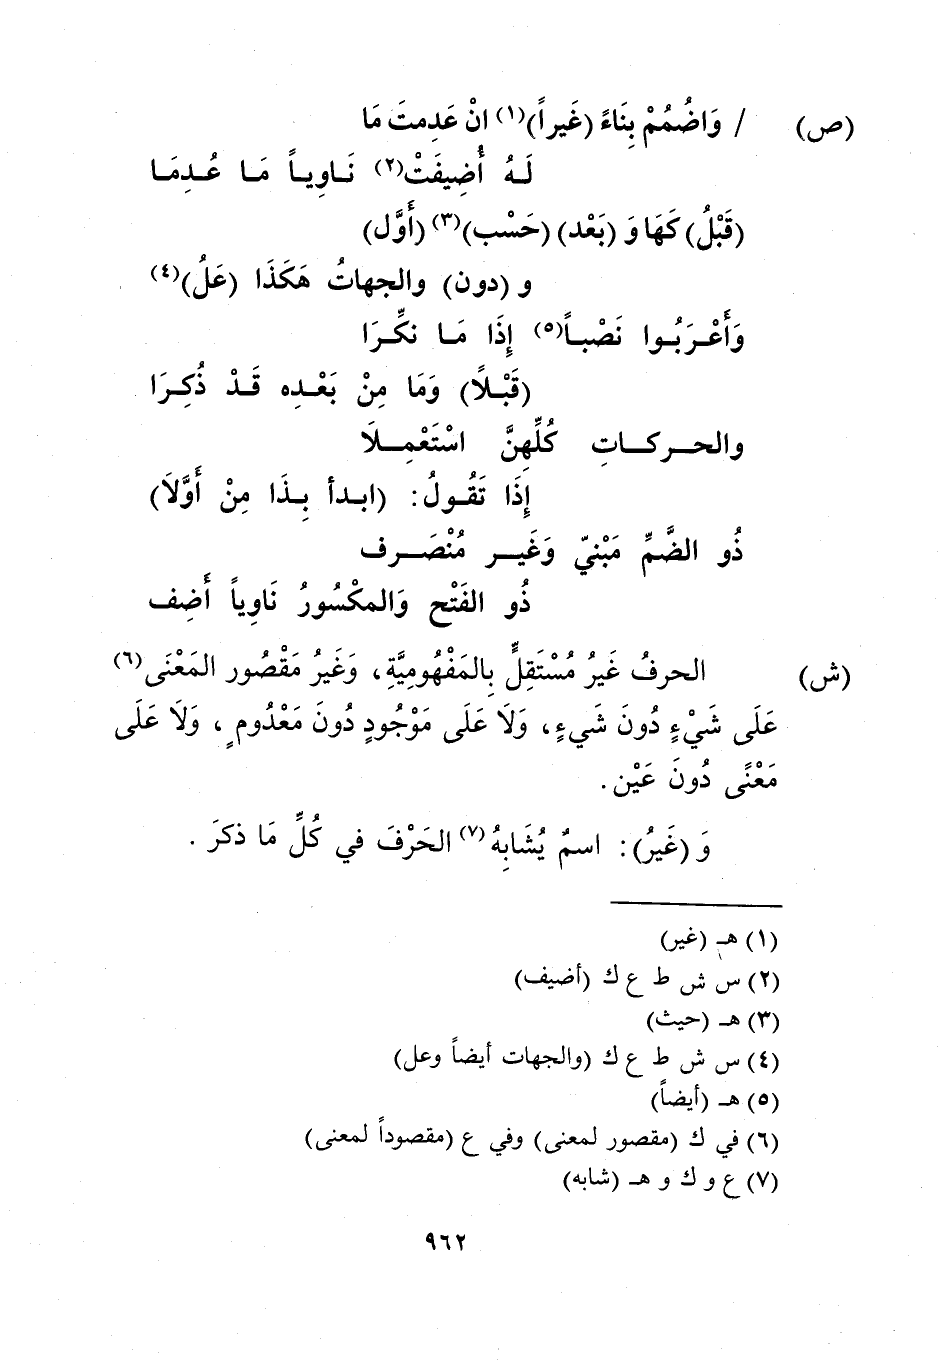 (ص) / وَاضْمُمْ بِنَاءً (غَيراً)(١) انْ عَدِمتَ مَا
لَـهُ أُضِيفَتْ(٢) نَـاوِيـاً مَـا عُـدِمَـا
(قَبْلُ) كَهَا وَ (بَعْد) (حَسْب)(٣) (أَوَّل)
و (دون) والجهاتُ هَكَذَا (عَلُ)(٤)
وَأَعْـرَبُـوا نَصْبـاً(٥) إِذَا مَـا نكِّـرَا
(قَبْـلاً) وَمَا مِنْ بَعْـدِه قَـدْ ذُكِـرَا
والحـركـاتِ كُلِّهِنَّ اسْتَعْمِـلَا
إِذَا تَقُـولُ: (ابـدأ بِـذَا مِنْ أَوَّلاَ)
ذُو الضَّمِّ مَبْنيّ وَغَيـر مُنْصَـرِف
ذُو الفَتْح وَالمكْسُورُ نَاوِياً أَضِف
(ش) الحرفُ غَيرُ مُسْتَقِلٍّ بِالمَفْهُومِيَّةِ، وَغَيرُ مَقْصُور المَعْنَى(٦)
عَلَى شَيْءٍ دُونَ شَيءٍ، وَلَا عَلَى مَوْجُودٍ دُونَ مَعْدُومٍ، وَلَا عَلَى
مَعْنًى دُونَ عَيْن.
وَ (غَيرُ): اسمٌ يُشَابِهُ(٧) الحَرْفَ في كُلِّ مَا ذكرَ.
(١) هـ (غير)
(٢) س ش ط ع ك (أضيف)
(٣) هـ (حيث)
(٤) س ش ط ع ك (والجهات أيضاً وعل)
(٥) هـ (أيضاً)
(٦) في ك (مقصور لمعنى) وفي ع (مقصوداً لمعنى)
(٧) ع و ك و هـ (شابه)
٩٦٢